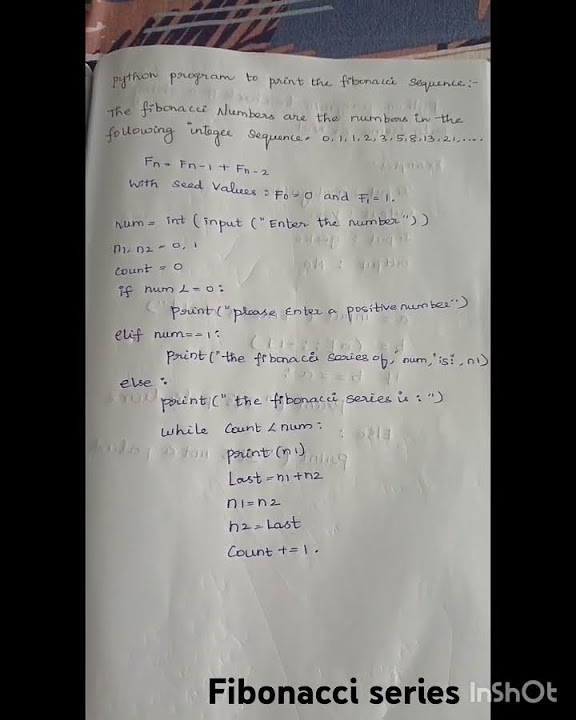 python program to print the fibonacci sequence:-
The fibonacci Numbers are the numbers in the
following integer sequence. 0,1,1,2,3,5,8,13,21,....
Fn = Fn-1 + Fn-2
with seed values : F0=0 and F1=1.
num = int (input ("Enter the number"))
n1, n2 = 0, 1
count = 0
if num <= 0:
print("please Enter a positive number")
elif num==1:
print("the fibonacci series of,"num,"is:, n1)
else :
print(" the fibonacci series is : ")
while count < num:
print (n1)
Last = n1+n2
n1=n2
n2=Last
Count +=1.
Fibonacci series InShOt